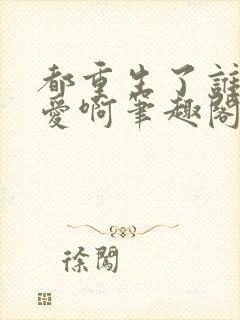 都重生了誰
愛啊筆趣閣
徐闖